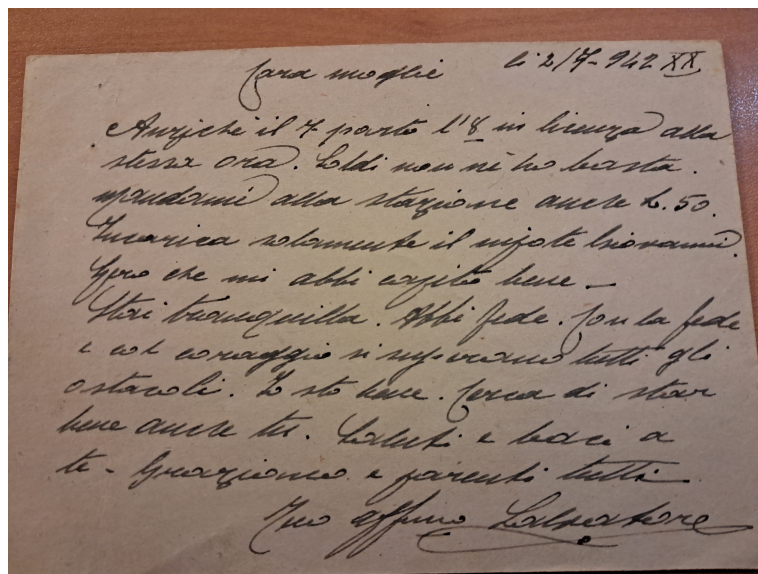 Cara moglie li 2/7-942 XX
Anziché il 7 parto l'8 in licenza alla
stessa ora. Soldi non né ho basta.
mandami alla stazione anche L. 50.
Incarica solamente il nipote Giovanni.
Spero che mi abbi capito bene –
Stai tranquilla. Abbi fede. Con la fede
e col coraggio si superano tutti gli
ostacoli. Io sto bene. Cerca di star
bene anche tu. Saluti e baci a
te – Graziano e parenti tutti
Tuo affmo Salvatore